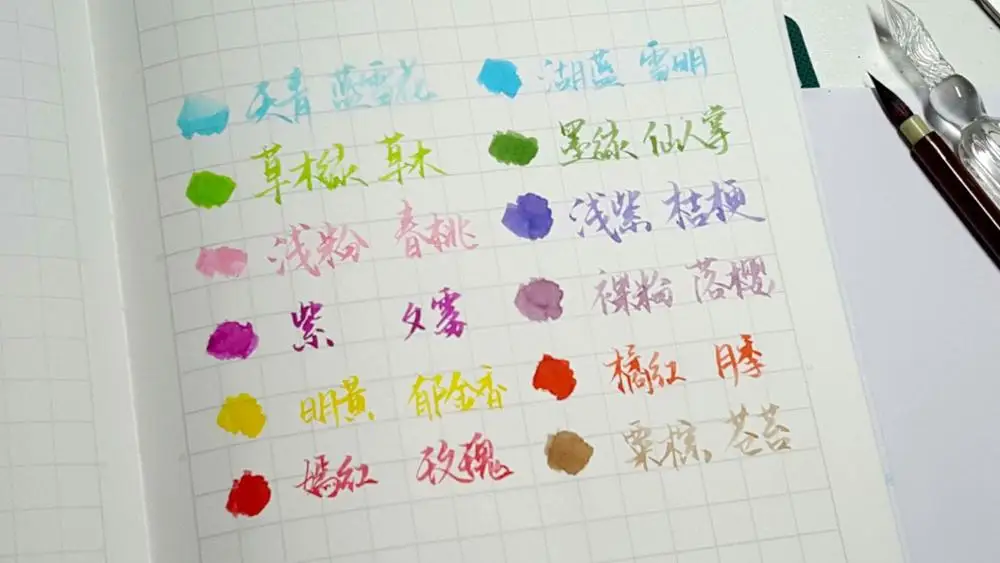 天青 蓝雪花 湖蓝 雪明
草木绿 草木 墨绿 仙人掌
浅粉 春桃 浅紫 桔梗
紫 夕雾 裸粉 落樱
明黄 郁金香 橘红 月季
嫣红 玫瑰 栗棕 苍苔